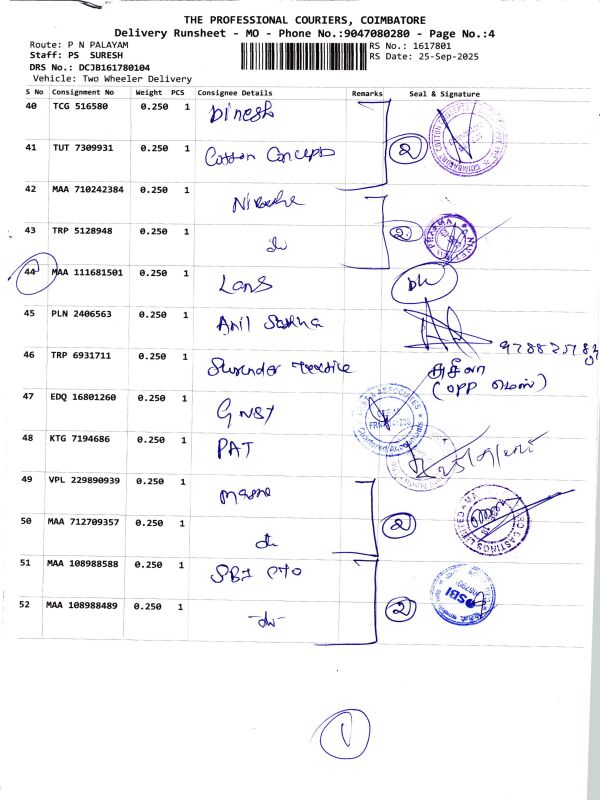 THE PROFESSIONAL COURIERS, COIMBATORE
Delivery Runsheet - MO - Phone No.:9047080280 - Page No.:4
Route: P N PALAYAM
RS No.: 1617801
Staff: PS SURESH
RS Date: 25-Sep-2025
DRS No.: DCJB161780104
Vehicle: Two Wheeler Delivery
S No Consignment No Weight PCS Consignee Details Remarks Seal & Signature
40 TCG 516580 0.250 1 Dinesh
41 TUT 7309931 0.250 1 Cotton Concepts 2
42 MAA 710242384 0.250 1
43 TRP 5128948 0.250 1 do 2
44 MAA 111681501 0.250 1 Lans
45 PLN 2406563 0.250 1 Anil
46 TRP 6931711 0.250 1 Surender
(opp மெஸ்)
47 EDQ 16801260 0.250 1
48 KTG 7194686 0.250 1 PAT
49 VPL 229890939 0.250 1
50 MAA 712709357 0.250 1 do 2
51 MAA 108988588 0.250 1 SBI
52 MAA 108988489 0.250 1 -do- 2
SBI
1